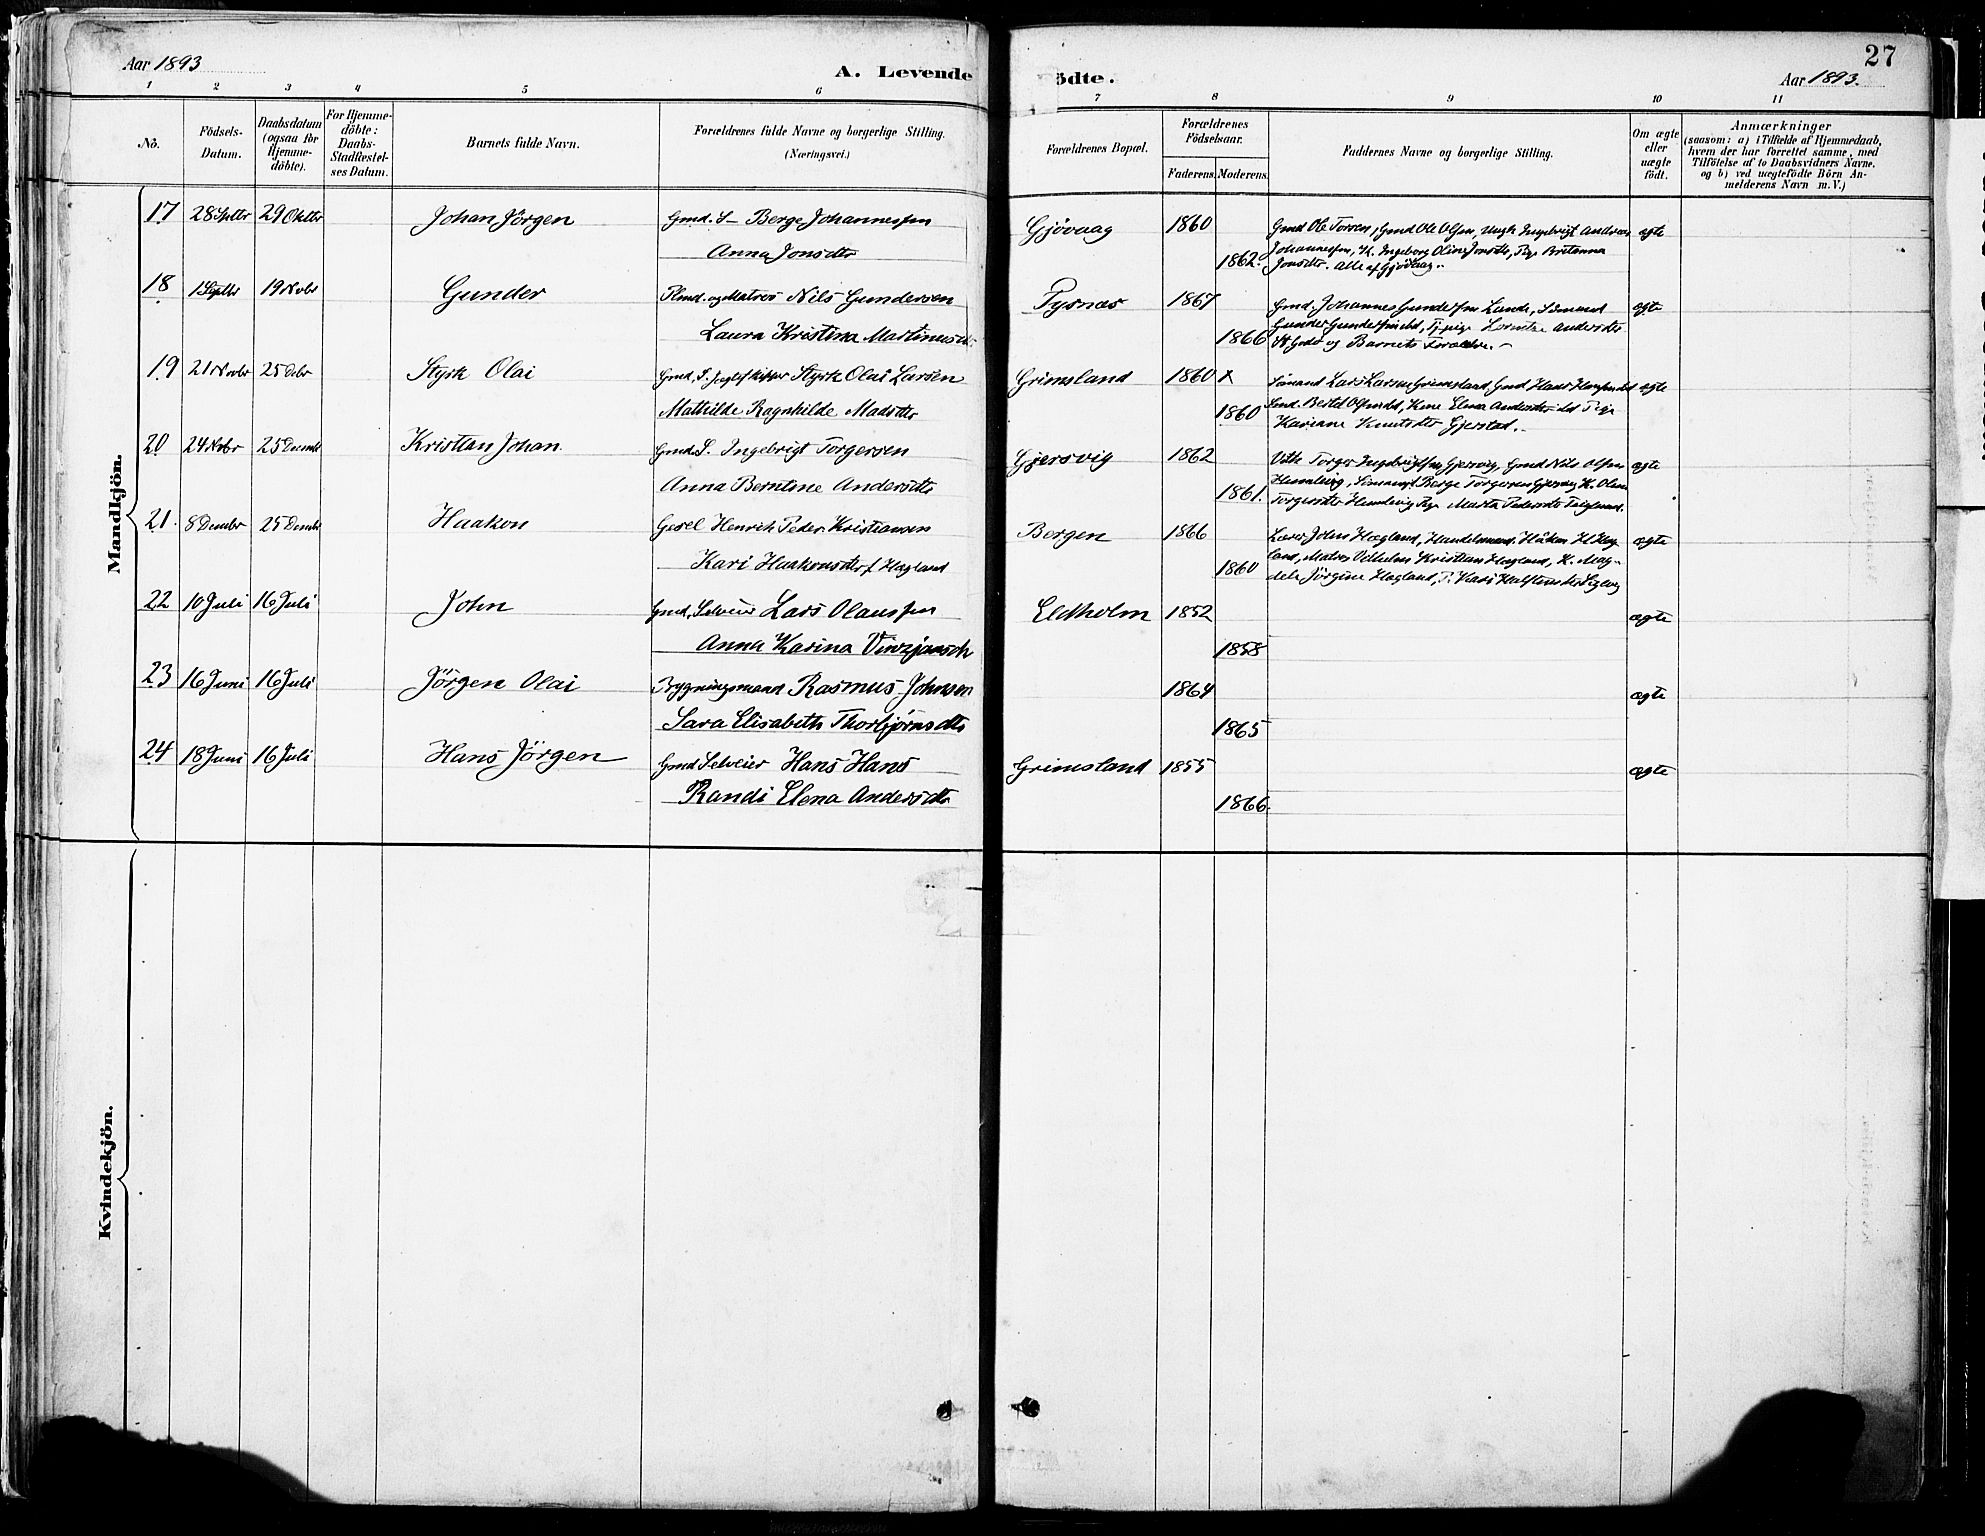 Aar 1893
A. Levende
ödte.
27
Aar 1893.
1 2 3 4 5 6 7 8 9 10 11
No.
Födsels-Datum.
Daabsdatum (ogsaa for Hjemmedöbte).
For Hjemmedöbte: Daabs-Stadfestelses Datum.
Barnets fulde Navn.
Forældrenes fulde Navne og borgerlige Stilling.
(Næringsvei.)
Forældrenes Bopæl.
Forældrenes Födselsaar.
Faderens. Moderens.
Faddernes Navne og borgerlige Stilling.
Om ægte eller uægte födt.
Anmærkninger
(saasom: a) i Tilfælde af Hjemmedaab, hvem der har forrettet samme, med Tilföielse af to Daabsvidners Navne, og b) ved uægtefödte Börn Anmelderens Navn m. V.)
Mandkjön.
17 28 Septbr 29 Oktbr Johan Jörgen Gmd. S– Berge Johannessen Gjövaag 1860 Gmd Ole Olsen, Ungk Ingebrigt Andreas ægte
Anna Jonsdtr 1862. Johannessen, K. Ingeborg Olina Jonsdtr, Pige Britanna
Jonsdtr. Alle af Gjövaag.
18 1 Septbr 19 Novbr Gunder Plmd. og Matros Nils Gundersen Tysnæs 1867 Gmd. Johannes Gundersen Lunde, Sömand ægte
Laura Kristina Martinusd. 1866 Gunder Gundersen ibd, Tj. pige Andersdtr
og Barnets Forældre.
19 21 Novbr 25 Debr Styrk Olai Gmd. S. Styrk Olai Larsen Grimsland 1860 x Sömand Lars Larsen Grimsland, Gmd Hans Hansen ibd ægte
Mathilde Ragnhilde Madsdtr 1860 Gmd. Bertel Olsen ibd, Kone Elena Andersdtr ibd Pige
Kariane Knutsdtr Gjerstad.
20 24 Novbr 25 Decembr Kristian Johan Gmd. S. Ingebrigt Torgersen Gjersvig 1862 Torger Ingebrigtsen Gjersvig, Gmd Nils Olsen ægte
Anna Berntine Andersdtr 1861. Sömand Berge Torgersen Gjersvig K. Olina
Torgersdtr Pige Marta Pedersdtr
21. 8 Decembr 25 Decembr Haakon Gesel Henrik Peder Kristiansen Bergen 1866 Lærer John Hagland, Handelsmand Håkon H Hag- ægte
Kari Haakonsdtr f. Hagland 1860 land, Matros Vilhelm Kristian Hagland, K. Mag-
dela Jörgine Hagland, P. Kari
22 10 Juli 16 Juli John Gmd. Selveier Lars Olaussen Eldholm 1852 ægte
Anna Karina 1858
23 16 Juni 16 Juli Jörgen Olai Bygningsmand Rasmus Johnsen 1864 ægte
Sara Elisabeth Thorbjörnsdtr 1865
24 18 Juni 16 Juli Hans Jörgen Gmd Selveier Hans Hans Grimsland 1855 ægte
Randi Elena Andersdtr 1866.
Kvindekjön.